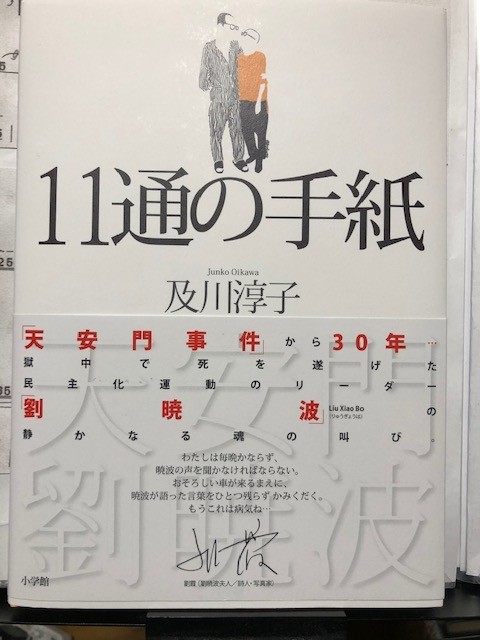 11通の手紙
Junko Oikawa
及川淳子
「天安門事件」から30年…
獄中で死を遂げた
民主化運動のリーダー
「劉暁波」Liu Xiao Bo（りゅうぎょうは）の
静かなる魂の叫び。
天安門
劉暁波
わたしは毎晩かならず、
暁波の声を聞かなければならない。
おそろしい車が来るまえに、
暁波が語った言葉をひとつ残らずかみくだく。
もうこれは病気ね…
劉霞（劉暁波夫人／詩人・写真家）
小学館
25
35